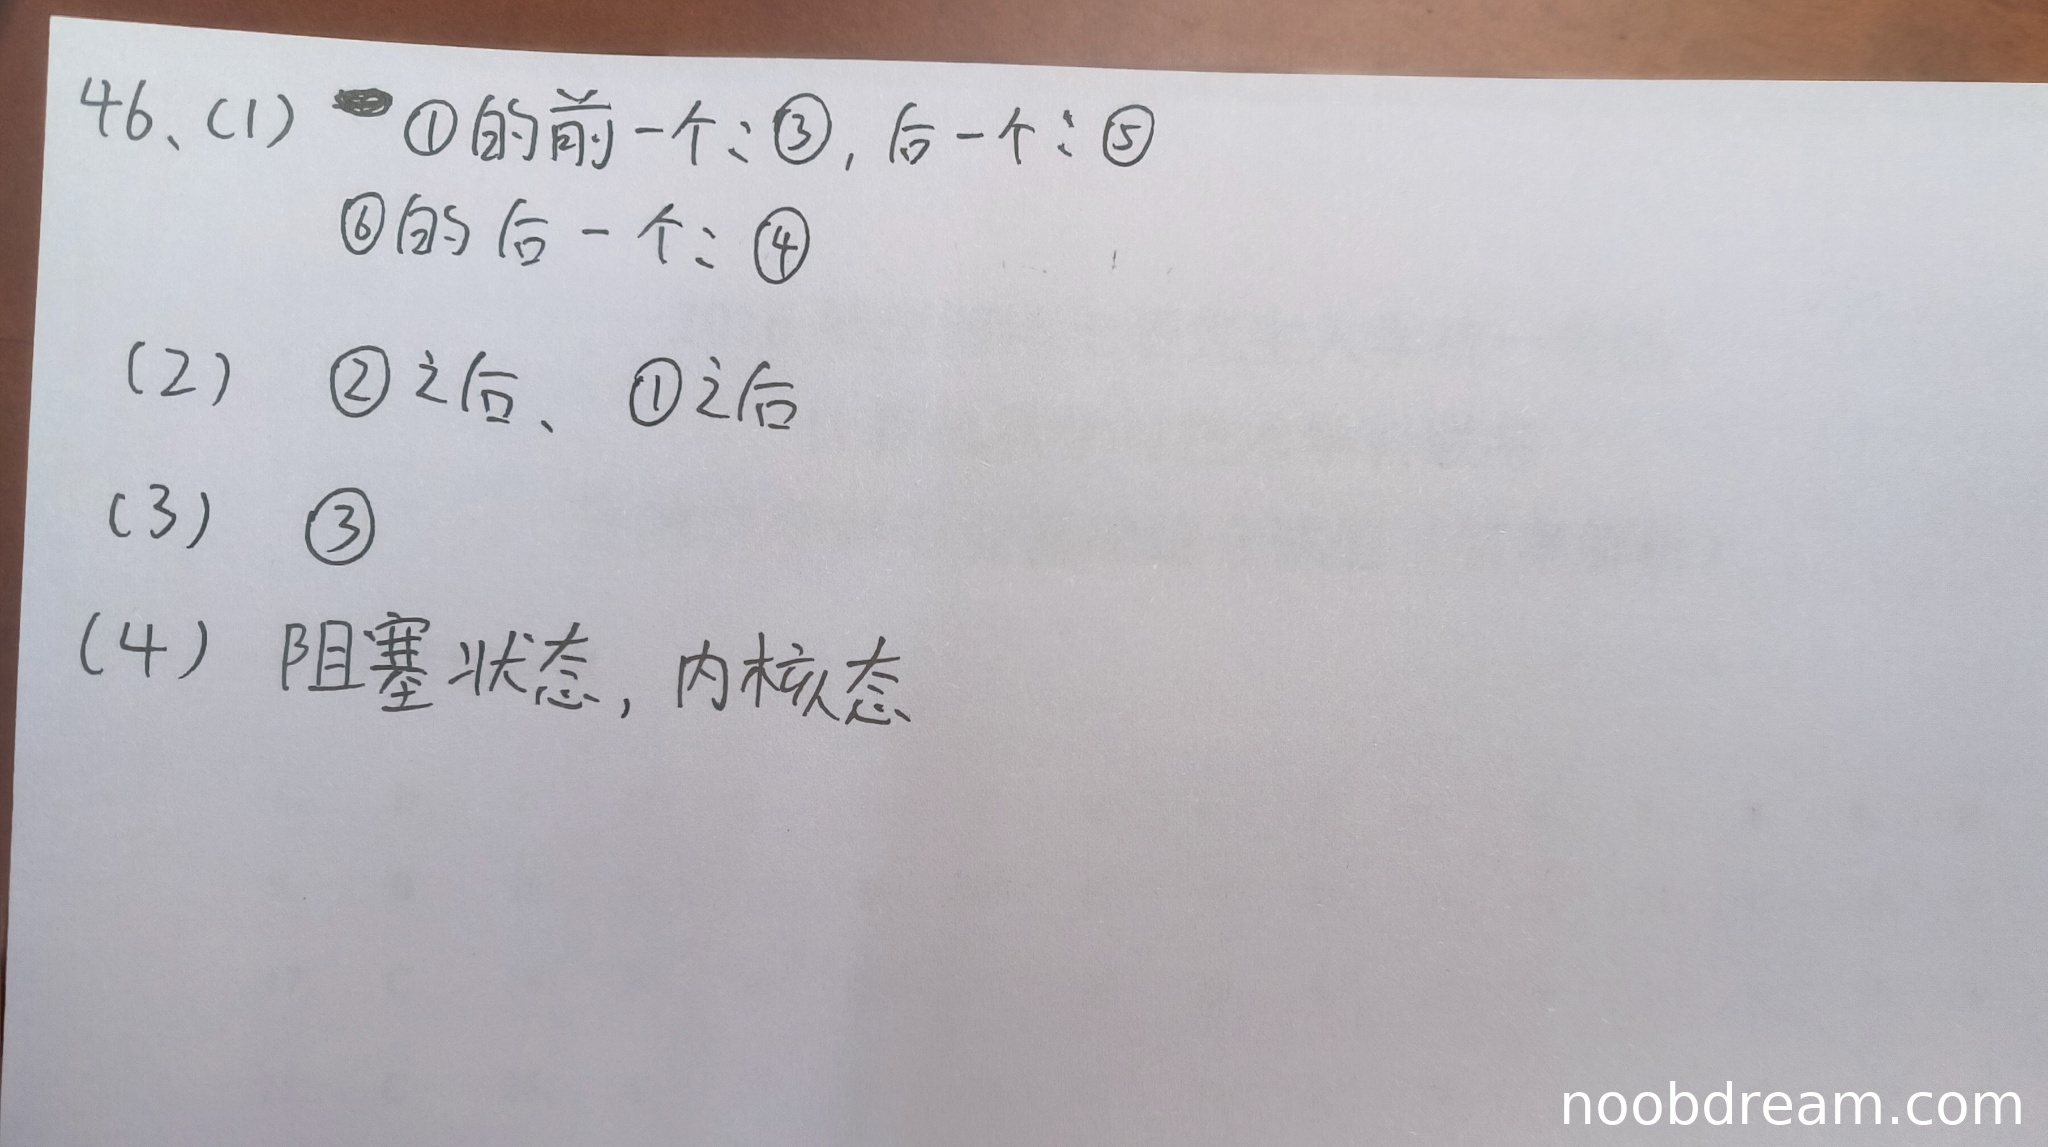 46、(1) ①的前一个：③，后一个：⑤
⑥的后一个：④
(2) ②之后、①之后
(3) ③
(4) 阻塞状态，内核态
noobdream.com